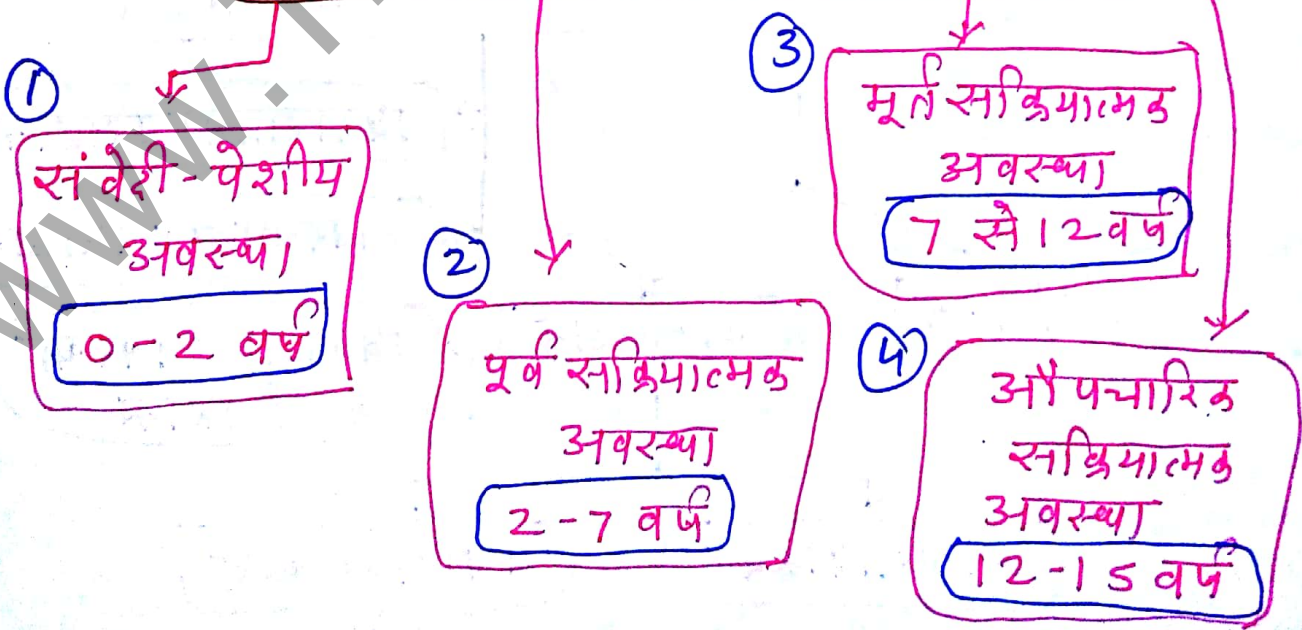 ①
संवेदी-पेशीय
अवस्था
0-2 वर्ष
②
पूर्व सक्रियात्मक
अवस्था
2-7 वर्ष
③
मूर्त सक्रियात्मक
अवस्था
7 से 12 वर्ष
④
औपचारिक
सक्रियात्मक
अवस्था
12-15 वर्ष
www.